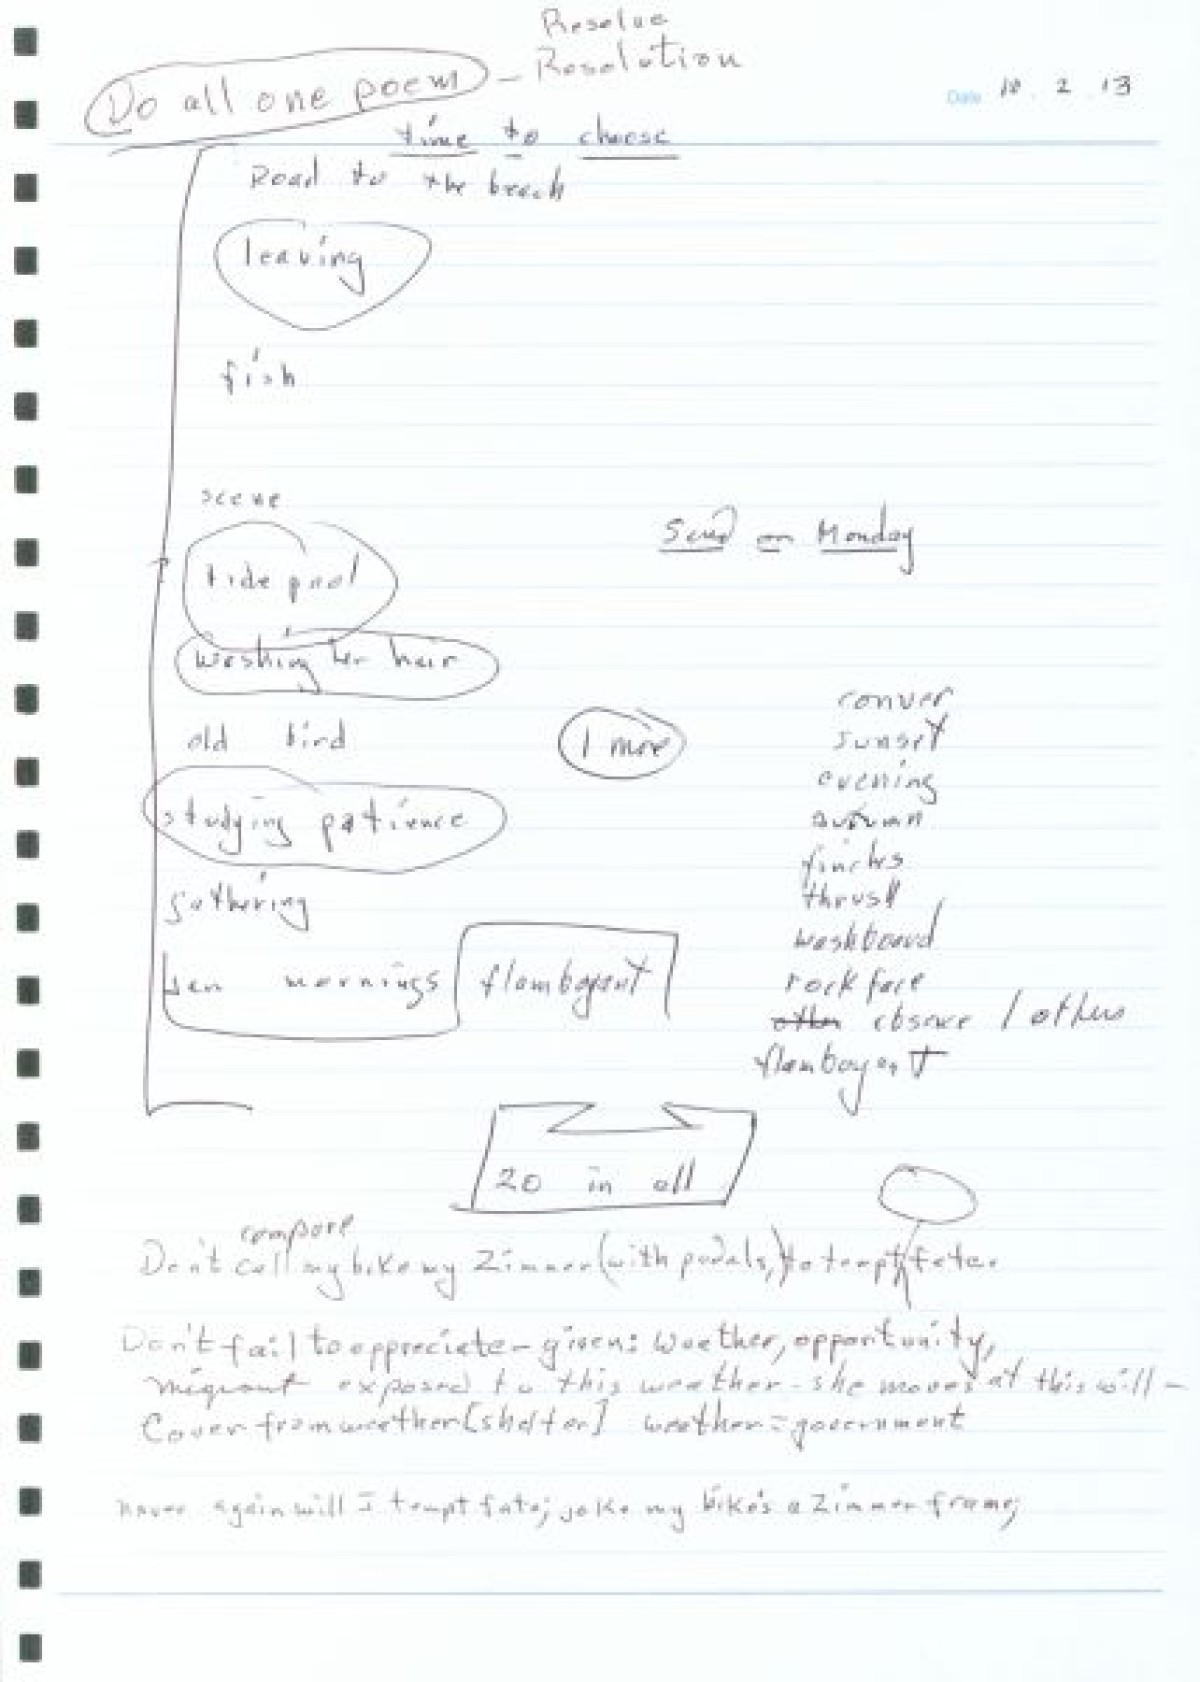 Resolve
Do all one poem - Resolution
Date 10 . 2 . 13
time to choose
Road to the beach
leaving
fish
scene
Send on Monday
tide pool
washing her hair
conver
old bird
1 more
sunset
evening
studying patience
autumn
finches
gathering
thrush
washboard
ten mornings
flamboyant
rock face
other absence / others
flamboyant
20 in all
compare
Don't call my bike my Zimmer (with pedals,) to tempt fate.
Don't fail to appreciate - given: weather, opportunity,
migrant exposed to this weather - she moves at this will -
Cover from weather [shelter] weather = government
never again will I tempt fate; joke my bike's a Zimmer frame;